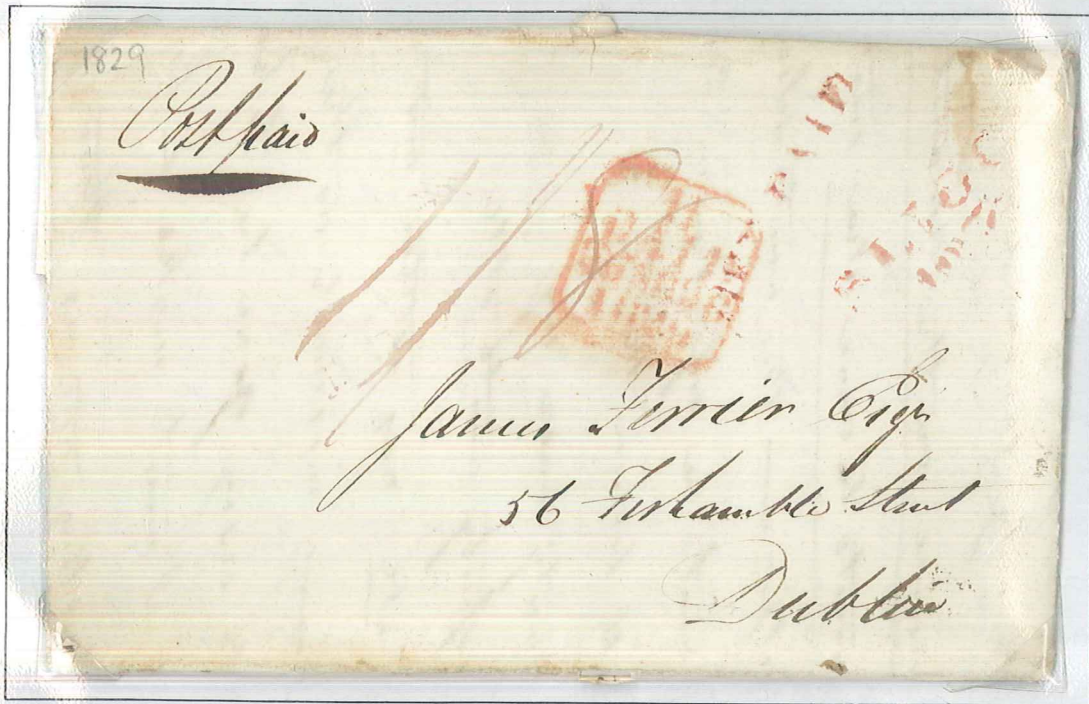 1829
Post paid
PAID
1/8
James Ferrier Esqr
56 Fishamble Street
Dublin